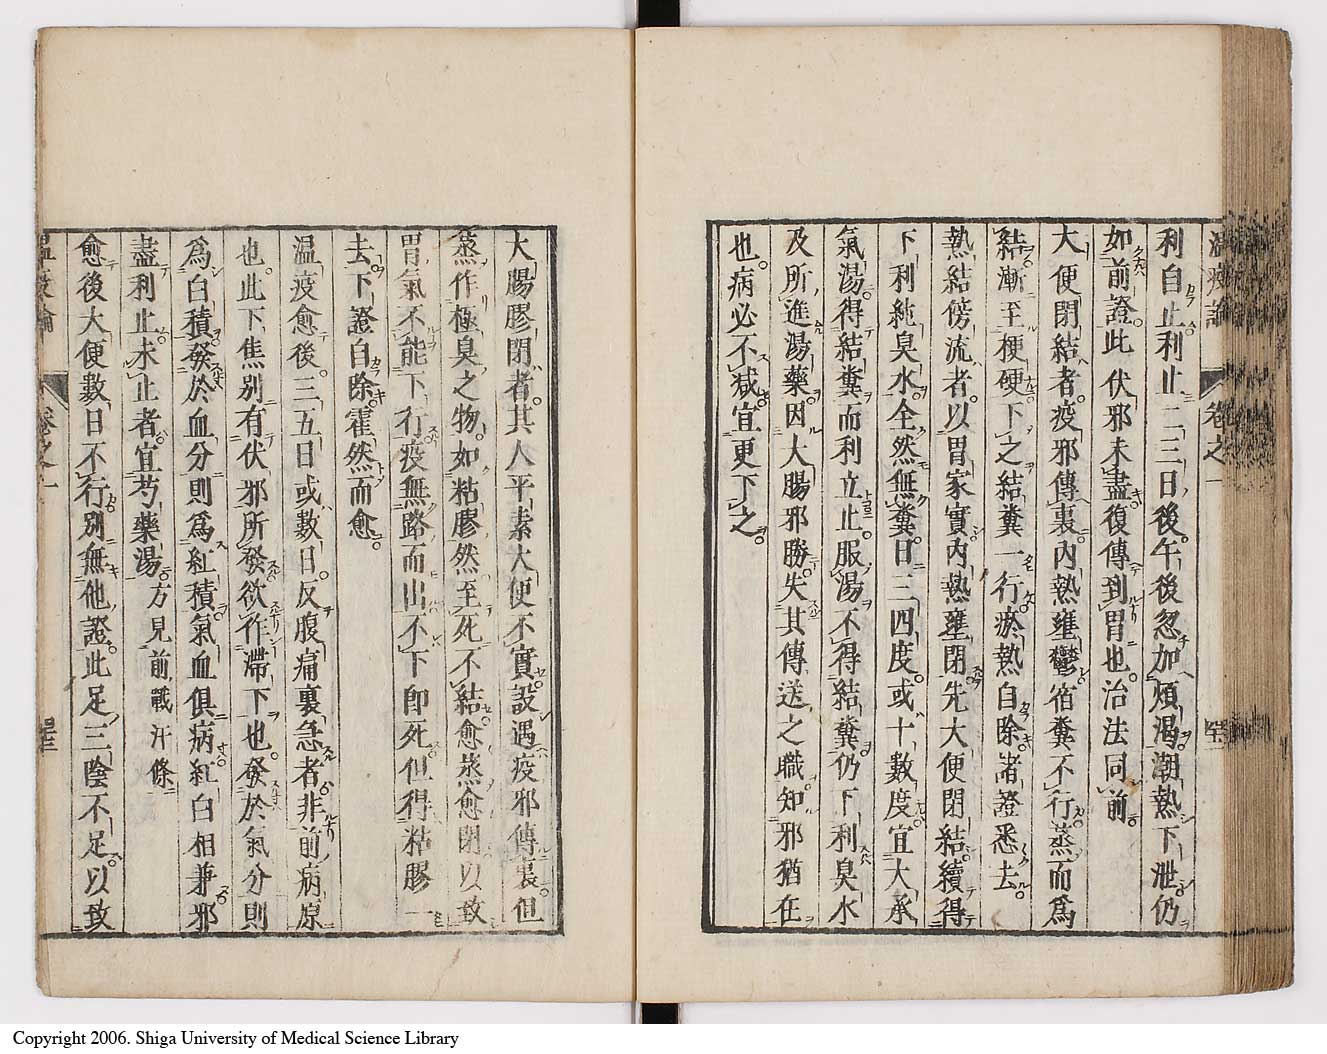 溫疫論 卷之一
利自止利止二三日後午後忽加煩渴潮熱下泄仍
如前證此伏邪未盡復傳到胃也治法同前
大便閉結者疫邪傳裏內熱壅鬱宿糞不行蒸而爲
結漸至梗硬下之結糞一行瘀熱自除諸證悉去
熱結傍流者以胃家實內熱壅閉先大便閉結續得
下利純臭水全然無糞日三四度或十數度宜大承
氣湯得結糞而利立止服湯不得結糞仍下利臭水
及所進湯藥因大腸邪勝失其傳送之職知邪猶在
也病必不减宜更下之
大腸膠閉者其人平素大便不實設遇疫邪傳裏但
蒸作極臭之物如粘膠然至死不結愈蒸愈閉以致
胃氣不能下行疫無路而出不下即死但得粘膠一
去下證自除霍然而愈
溫疫愈後三五日或數日反腹痛裏急者非前病原
也此下焦別有伏邪所發欲作滯下也發於氣分則
爲白積發於血分則爲紅積氣血俱病紅白相兼邪
盡利止未止者宜芍藥湯方見前戰汗條
愈後大便數日不行別無他證此足三陰不足以致
溫疫論 卷之一
Copyright 2006. Shiga University of Medical Science Library